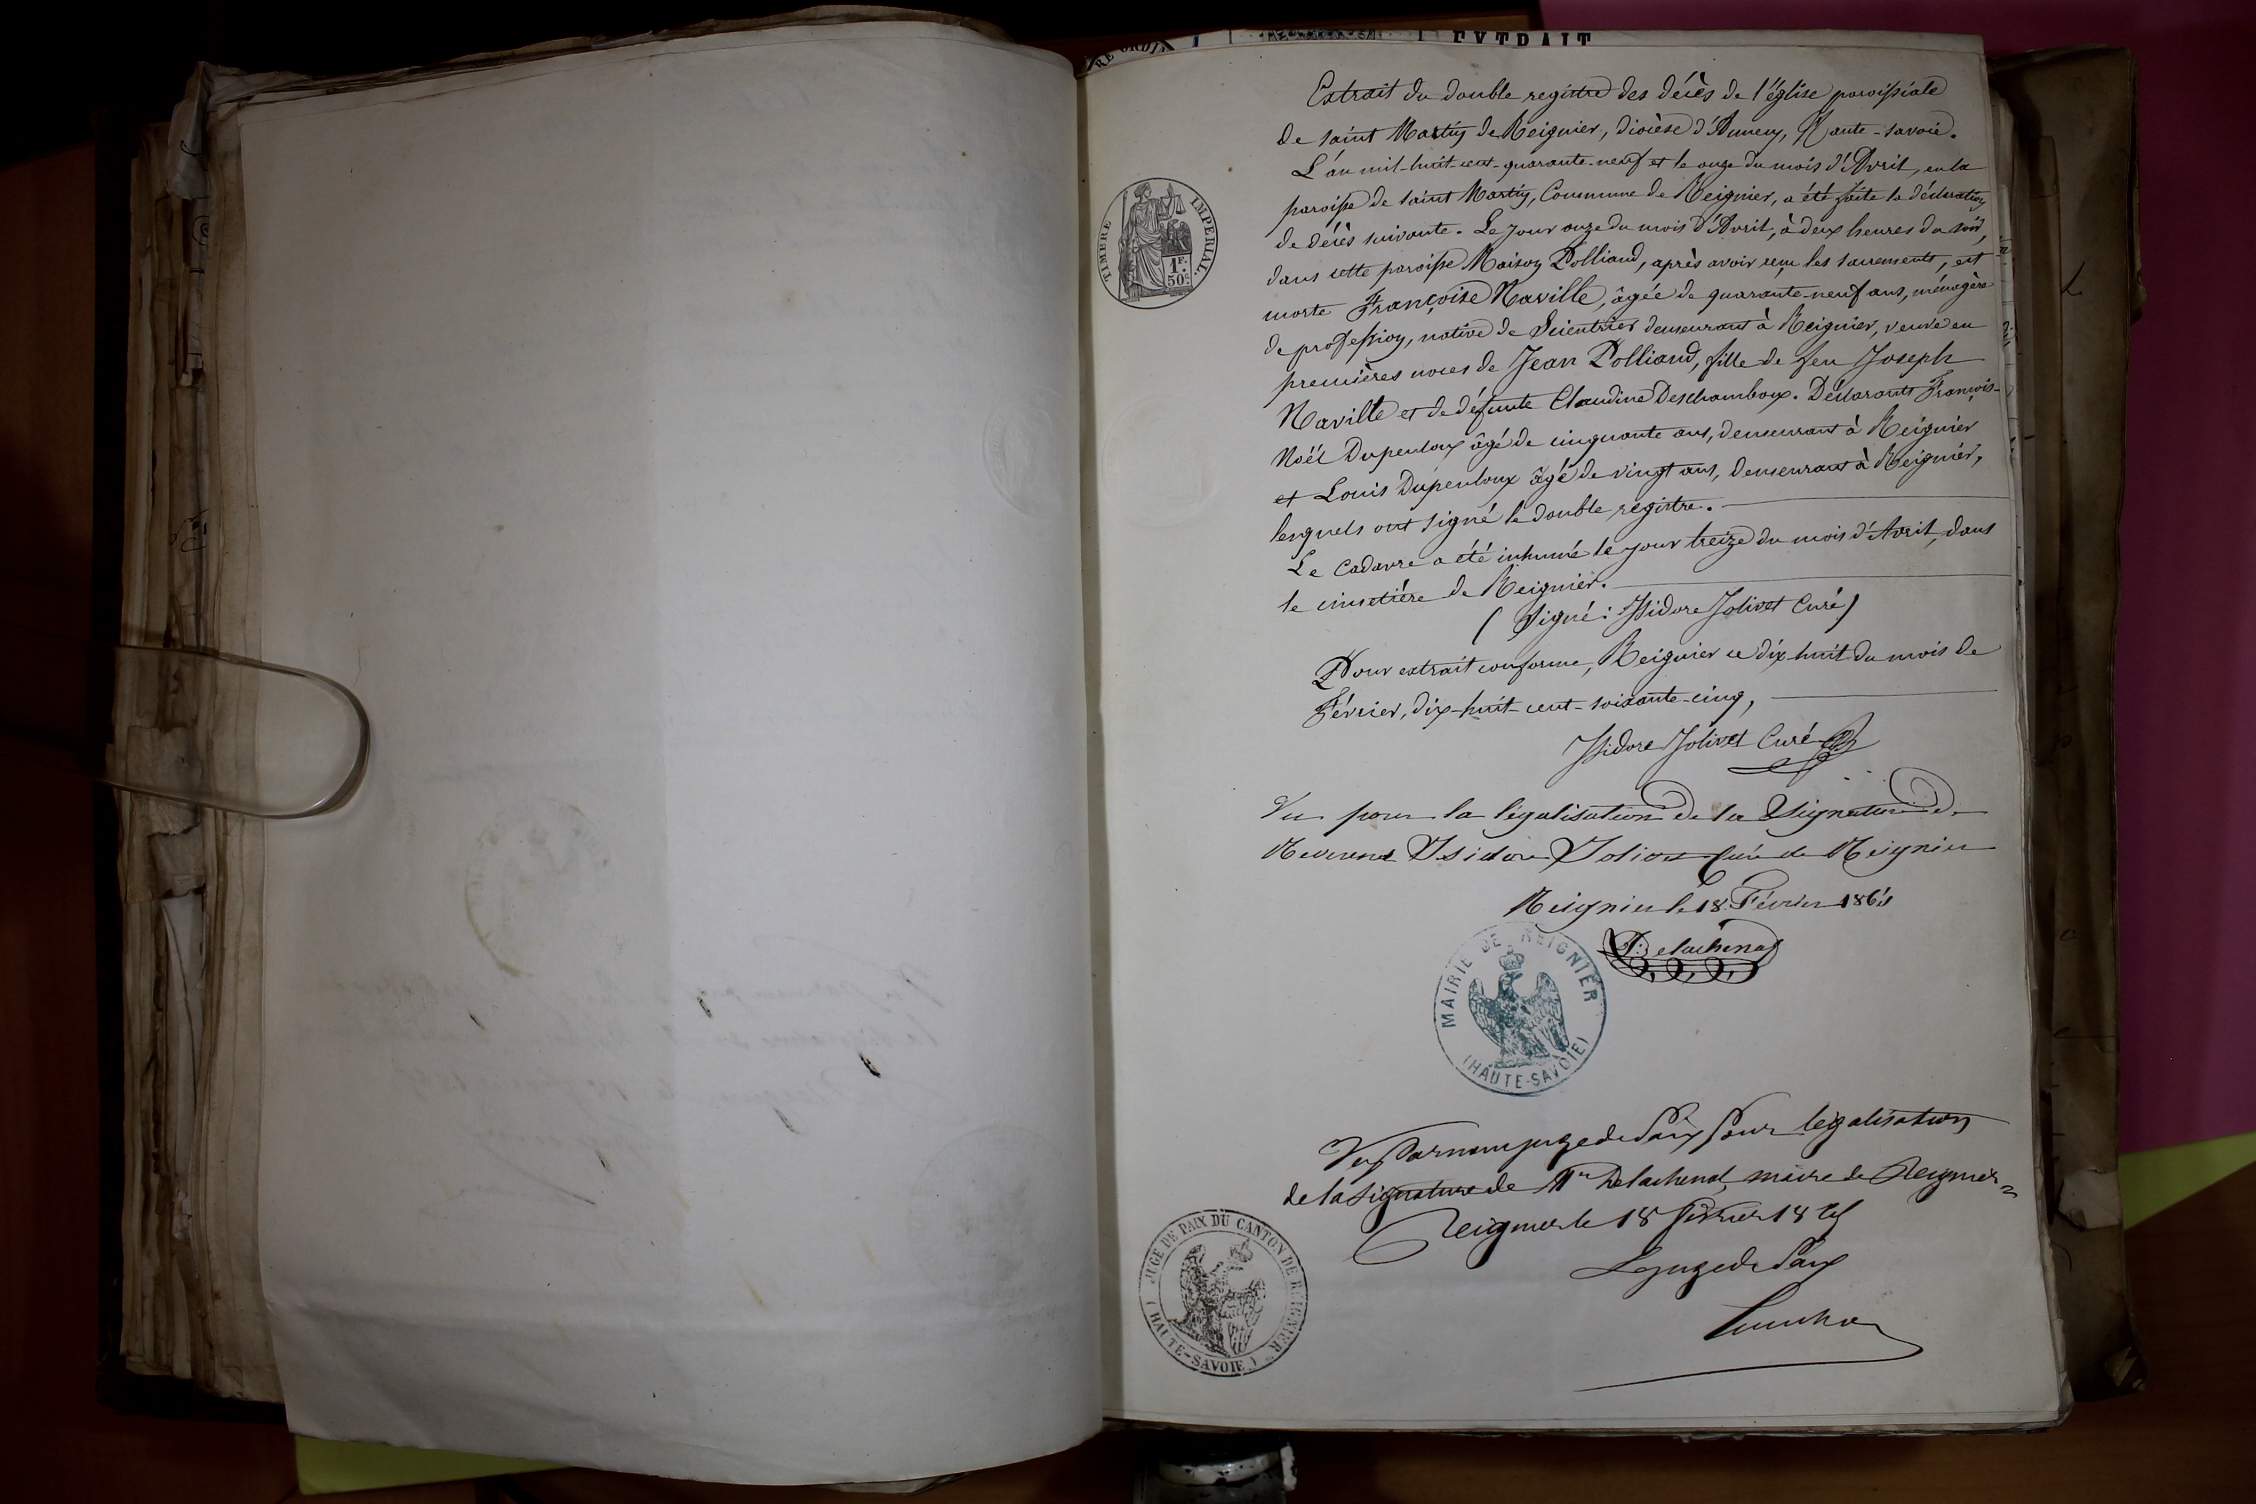 EXTRAIT
Extrait du double registre des décès de l'église paroissiale
de saint Martin de Reignier, diocèse d'Annecy, Haute-Savoie.
L'an mil-huit-cent-quarante-neuf et le onze du mois d'Avril, en la
paroisse de saint Martin, Commune de Reignier, a été faite la déclaration
de décès suivante. Le jour onze du mois d'Avril, à deux heures du soir,
dans cette paroisse Maison Polliand, après avoir reçu les sacrements, est
morte Françoise Naville, âgée de quarante-neuf ans, ménagère
de profession, native de Scientrier demeurant à Reignier, veuve en
premières noces de Jean Polliand, fille de feu Joseph
Naville et de défunte Claudine Deschamboux. Déclarants François-
Noël Dupenloux âgé de cinquante ans, demeurant à Reignier
et Louis Dupenloux âgé de vingt ans, demeurant à Reignier,
lesquels ont signé le double registre.
Le cadavre a été inhumé le jour treize du mois d'Avril, dans
le cimetière de Reignier.
(Signé: Isidore Jolivet Curé)
Pour extrait conforme, Reignier ce dix-huit du mois de
Février, dix-huit-cent-soixante-cinq,
Isidore Jolivet Curé
Vu pour la légalisation de la Signature de
Reverend Isidore Jolivet Curé de Reignier
Reignier le 18 Février 1865
Delachenal
Vu par nous juge de Paix pour légalisation
de la signature de Mr Delachenal, maire de Reignier =
Reignier le 18 février 1865
Le juge de Paix
TIMBRE IMPERIAL.
1F.
50c.
MAIRIE DE REIGNIER
(HAUTE-SAVOIE)
JUGE DE PAIX DU CANTON DE REIGNIER
(HAUTE-SAVOIE)